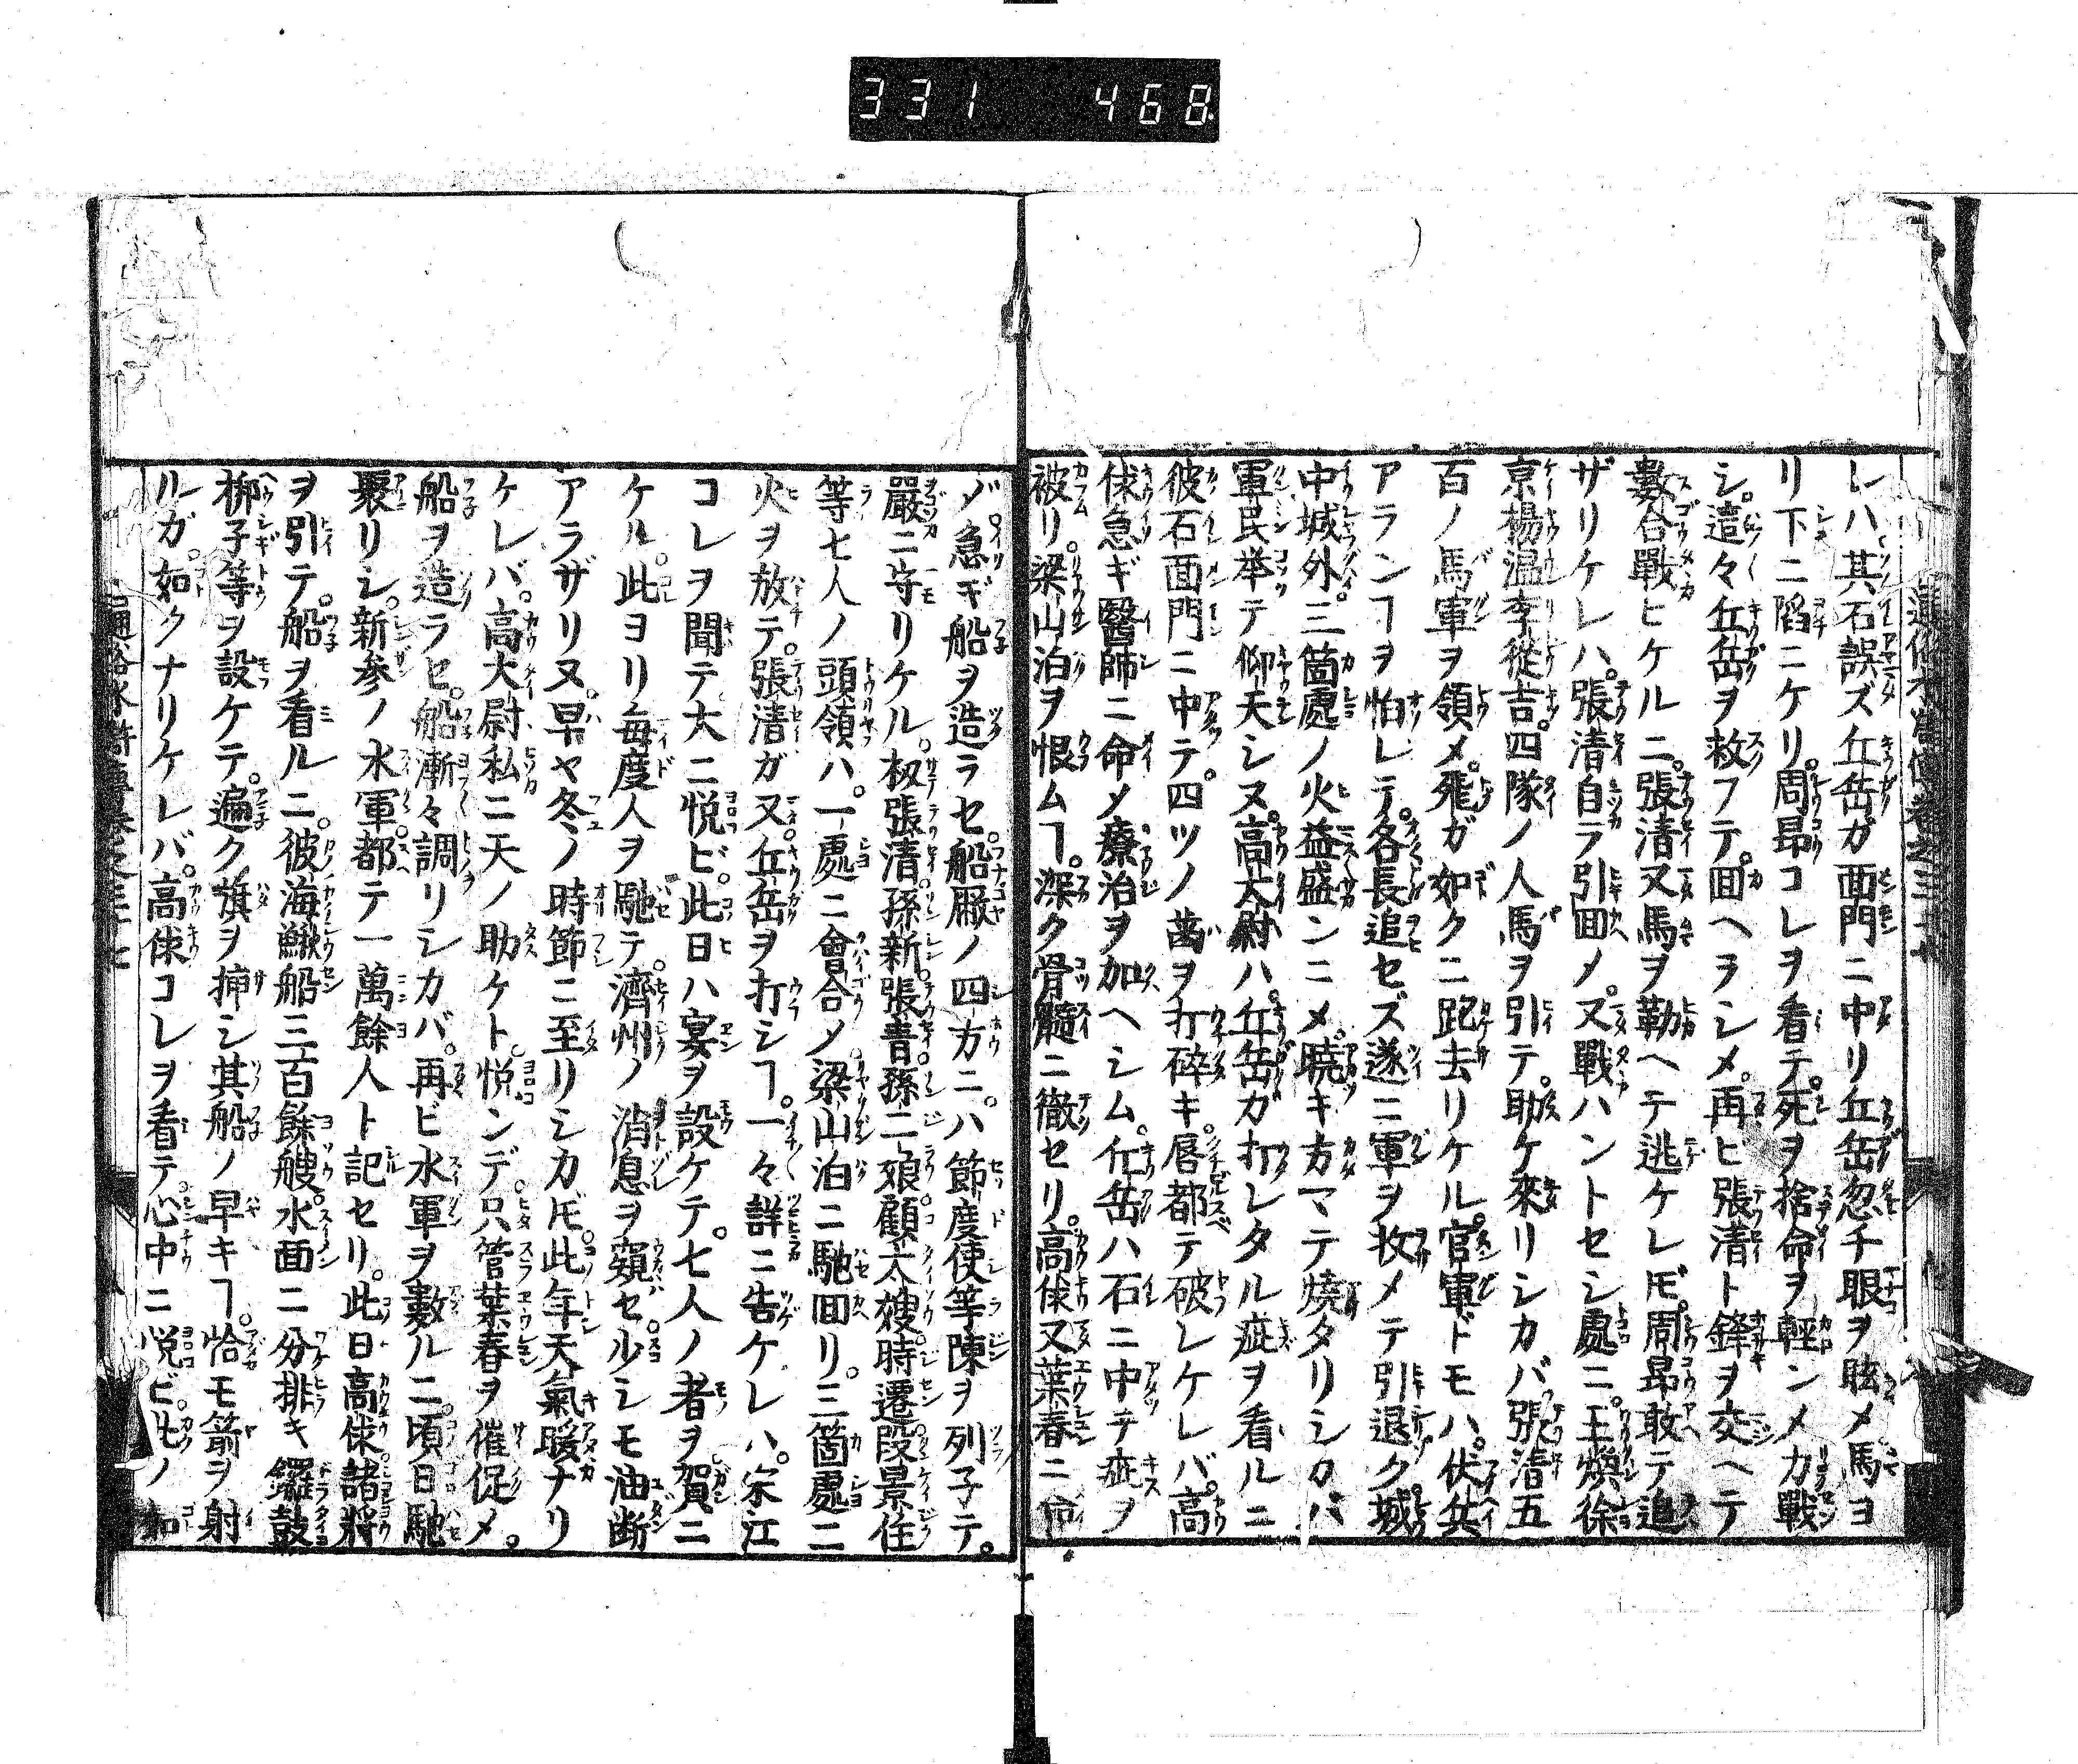 331 468
レハ其石誤ズ丘岳ガ面門ニ中リ丘岳忽チ眼ヲ眩メ馬ヨ
リ下ニ滔ニケリ。周昂コレヲ看テ。死ヲ捨命ヲ輕ンメカ戰
シ。遣々丘岳ヲ救フテ。囬ヘラシメ。再ヒ張清ト鋒ヲ交ヘテ
數合戰ヒケルニ。張清又馬ヲ勒ヘテ逃ケレ𪜈。周昂敢テ追
ザリケレハ。張清自ラ引囬メ。又戰ハントセシ處ニ。王煥徐
京楊温李從吉。四隊ノ人馬ヲ引テ。助ケ來リシカバ張清五
百ノ馬軍ヲ領メ。飛ガ如クニ跑去リケル。官軍ドモハ。伏兵
アランヿヲ怕レテ。各長追セズ遂ニ軍ヲ收メテ引退ク城
中城外。三箇處ノ火益盛ンニメ。曉キ方マテ燒タリシカバ
軍民举テ仰天シヌ。高太尉ハ。丘岳カ打レタル疵ヲ看ルニ
彼石面門ニ中テ。四ツノ齒ヲ打碎キ。唇都テ破レケレバ。高
俅急ギ醫師ニ命メ療治ヲ加ヘシム。丘岳ハ石ニ中テ疵ヲ
被リ。梁山泊ヲ恨ムヿ。深ク骨髓ニ徹セリ。高俅又葉春ニ命
ゾ。急ギ船ヲ造ラセ。船厰ノ四方ニ。ハ節度使等陳ヲ列子テ。
嚴ニ守リケル。扨張清孫新張青孫二娘顧大嫂時遷段景住
等七人ノ頭領ハ。一處ニ會合メ梁山泊ニ馳囬リ。三箇處ニ
火ヲ放テ。張清ガ又丘岳ヲ打シヿ。一々詳ニ告ケレハ。宋江
コレヲ聞テ大ニ悦ビ。此日ハ宴ヲ設ケテ。七人ノ者ヲ賀ニ
ケル。此ヨリ毎度人ヲ馳テ。濟州ノ消息ヲ窺セ。少シモ油断
アラザリ又。早ヤ冬ノ時節ニ至リシカ𪜈。此年天氣暖ナリ
ケレバ。高大尉私ニ天ノ助ケト。悦ンデ。只管葉春ヲ催促メ。
船ヲ造ラセ。船漸々調リシカバ。再ビ水軍ヲ數ルニ。頃日馳
聚リシ。新参ノ水軍都テ一萬餘人ト記セリ。此日高俅諸將
ヲ引テ。船ヲ看ルニ。彼海鰍船三百餘艘水面ニ分排キ鑼鼓
柳子等ヲ設ケテ。遍ク旗ヲ挿シ其船ノ早キヿ。恰モ箭ヲ射
ルガ。如クナリケレバ。高俅コレヲ看テ。心中ニ悦ビ。此ノ如